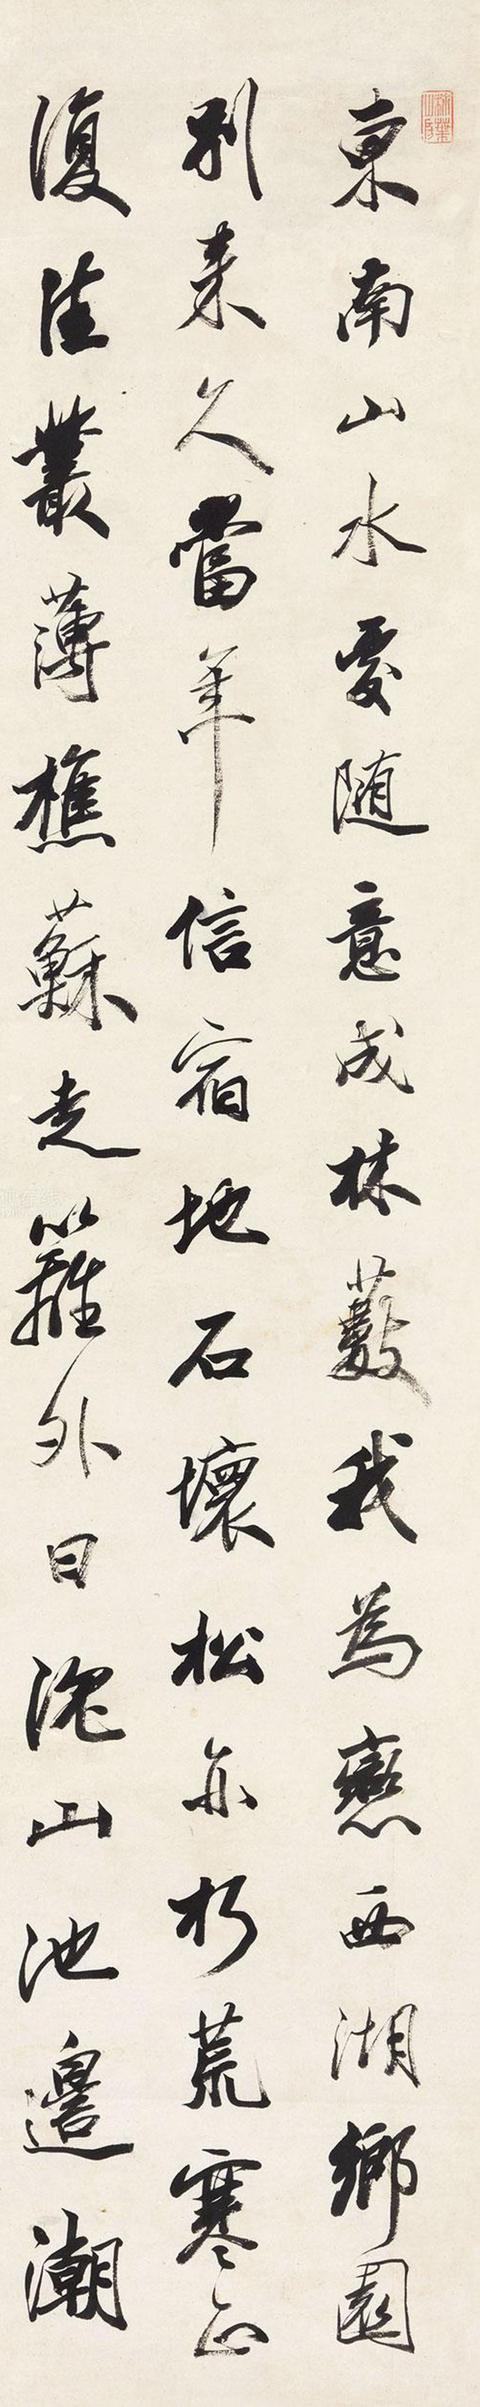 東南山水處随意成林藪我為戀西湖鄉園
別來久當年信宿地石壞松亦朽荒寒正
復佳叢薄樵蘇走籬外日沈山池邊潮